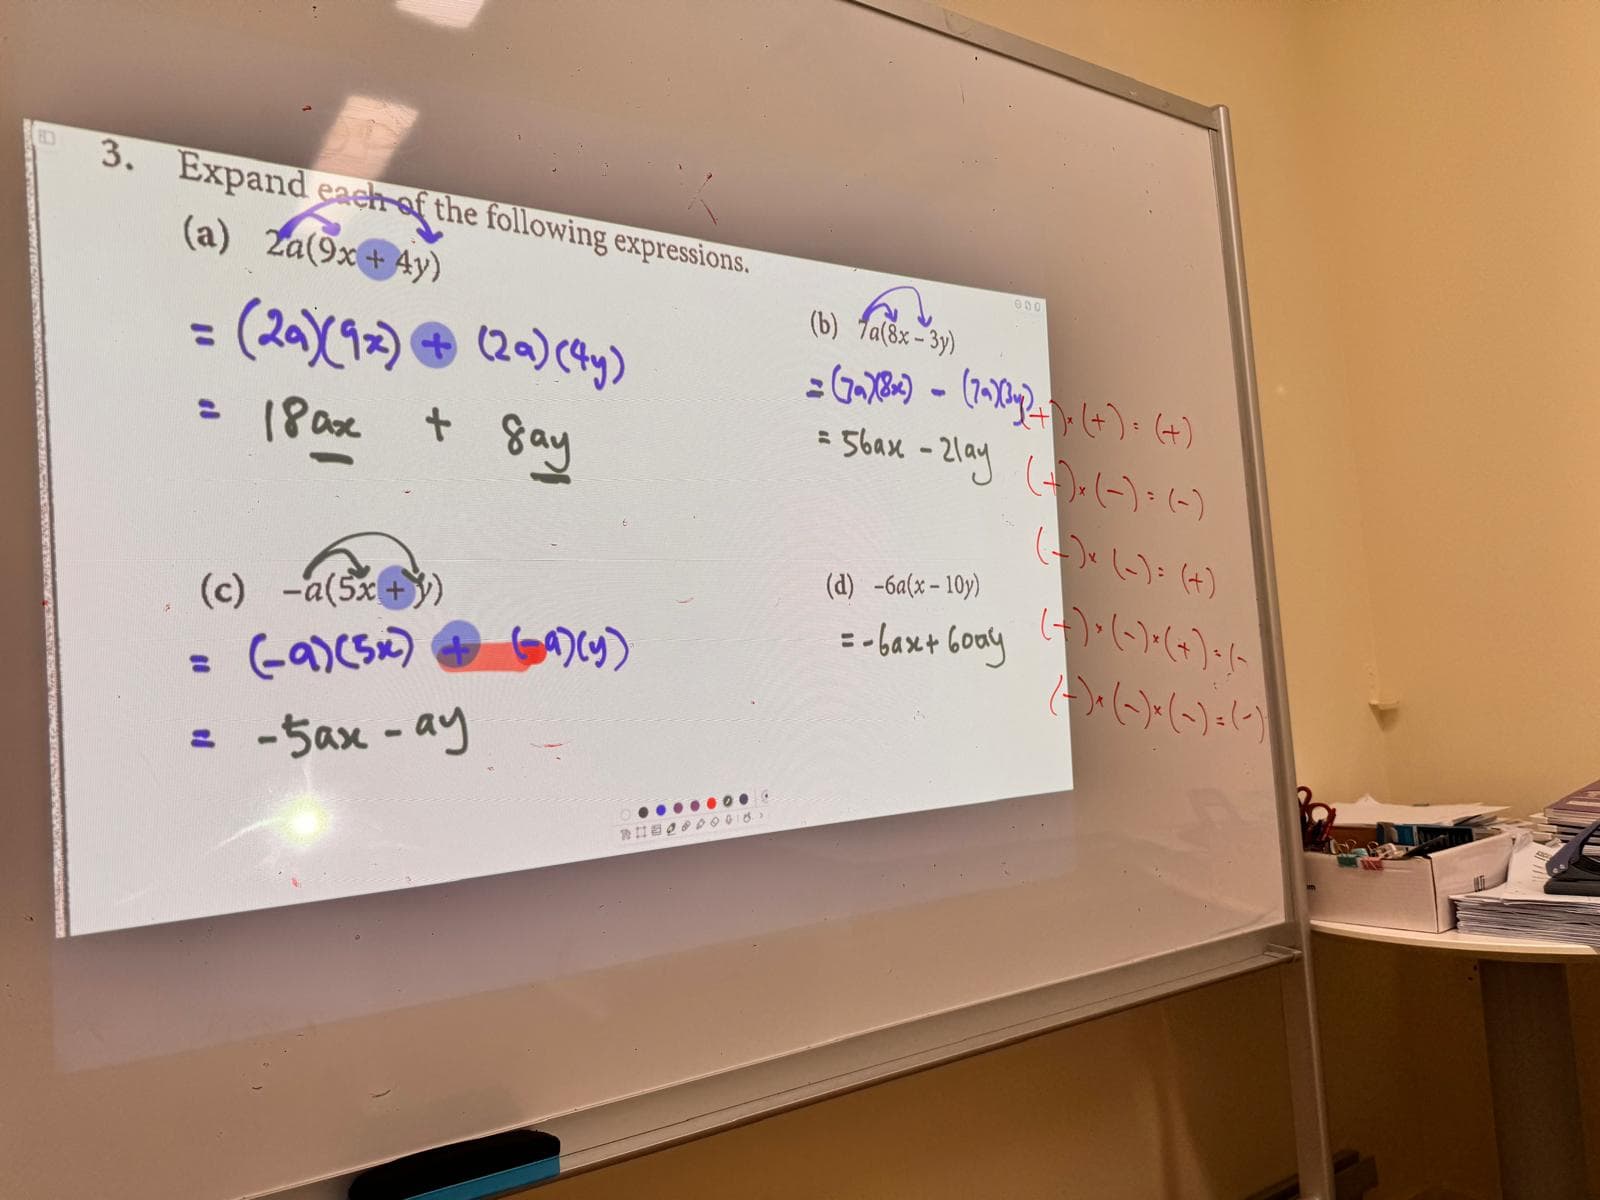 3. Expand each of the following expressions.
(a) 2a(9x + 4y)
= (2a)(9x) + (2a)(4y)
= 18ax + 8ay
(b) 7a(8x – 3y)
= (7a)(8x) - (7a)(3y)
= 56ax - 21ay
(c) –a(5x + y)
= (-a)(5x) + (-a)(y)
= -5ax - ay
(d) -6a(x – 10y)
= -6ax + 60ay
(+)×(+) = (+)
(+)×(-) = (-)
(-)×(-) = (+)
(+)×(-)×(+) = (-
(-)×(-)×(-) = (-)